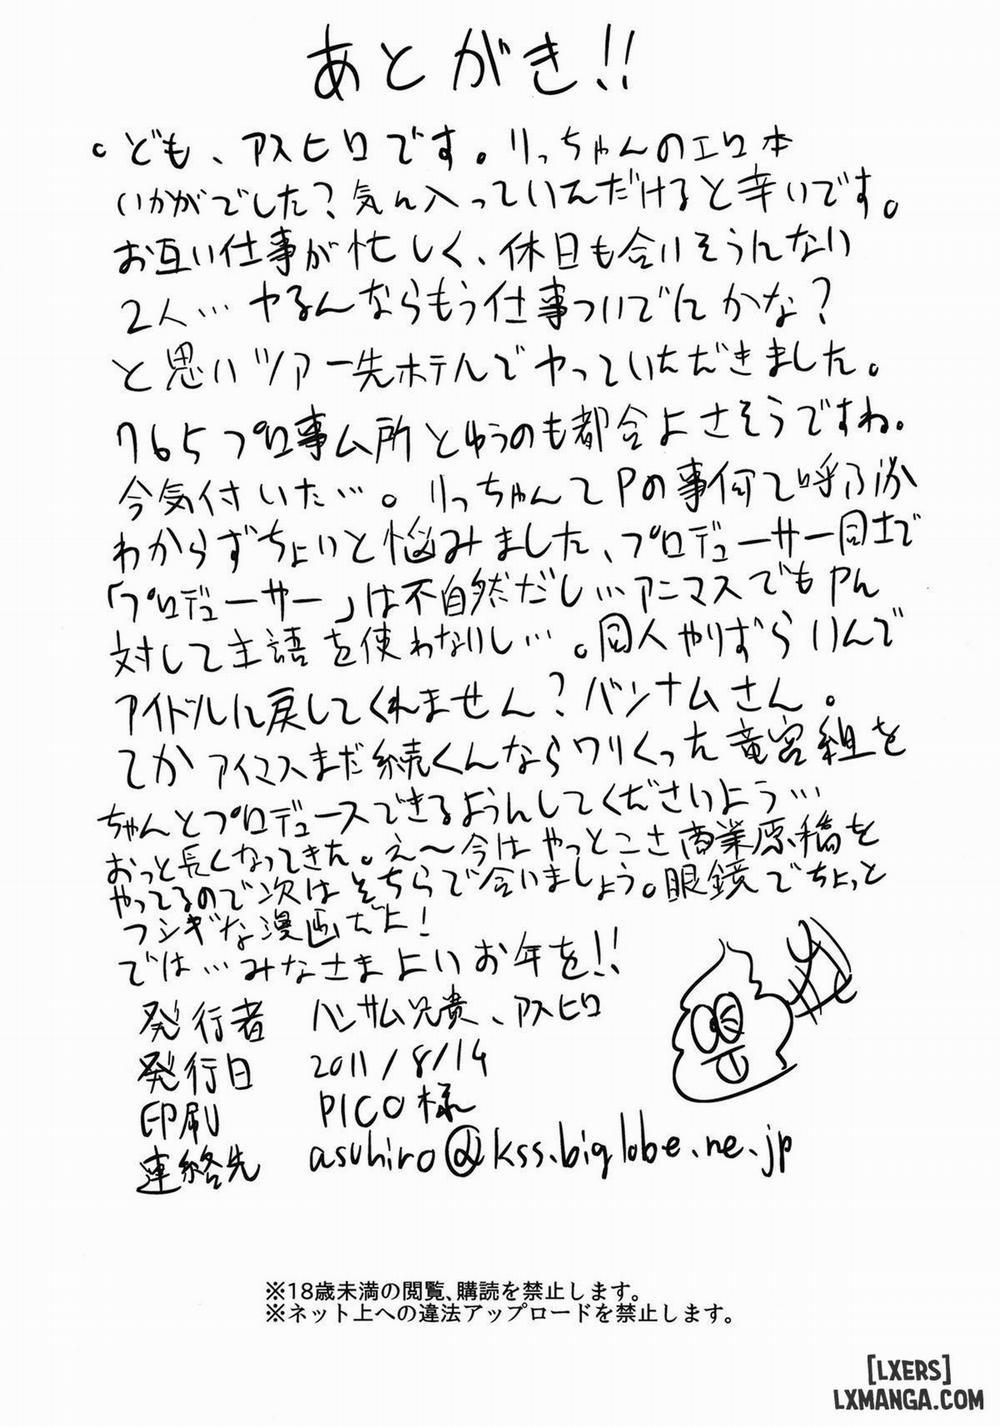 あとがき!!
。ども、アスヒロです。りっちゃんのエロ本
いかがでした?気に入っていただけると幸いです。
お互い仕事が忙しく、休日も合いそうにない
2人…ヤるんならもう仕事ついでにかな?
と思いツアー先ホテルでヤっていただきました。
765プロ事ム所とゆうのも都合よさそうですね。
今気付いた…。りっちゃんてPの事何て呼ぶか
わからずちょいと悩みました、プロデューサー同士で
「プロデューサー」は不自然だし…アニマスでもPに
対して主語を使わないし…。同人やりずらいんで
アイドルに戻してくれません?バンナムさん。
てかアイマスまだ続くんならワリくった竜宮組を
ちゃんとプロデュースできるようにしてくださいよう…
おっと長くなってきた。え〜今はやっとこさ商業原稿を
やってるので次はそちらで合いましょう。眼鏡でちょっと
フシギな漫画だよ!
では…みなさまよいお年を!!
発行者 ハンサム兄貴、アスヒロ
発行日 2011/8/14
印刷 PICO様
連絡先 asuhiro@kss.biglobe.ne.jp
※18歳未満の閲覧、購読を禁止します。
※ネット上への違法アップロードを禁止します。
[LXERS]
LXMANGA.COM